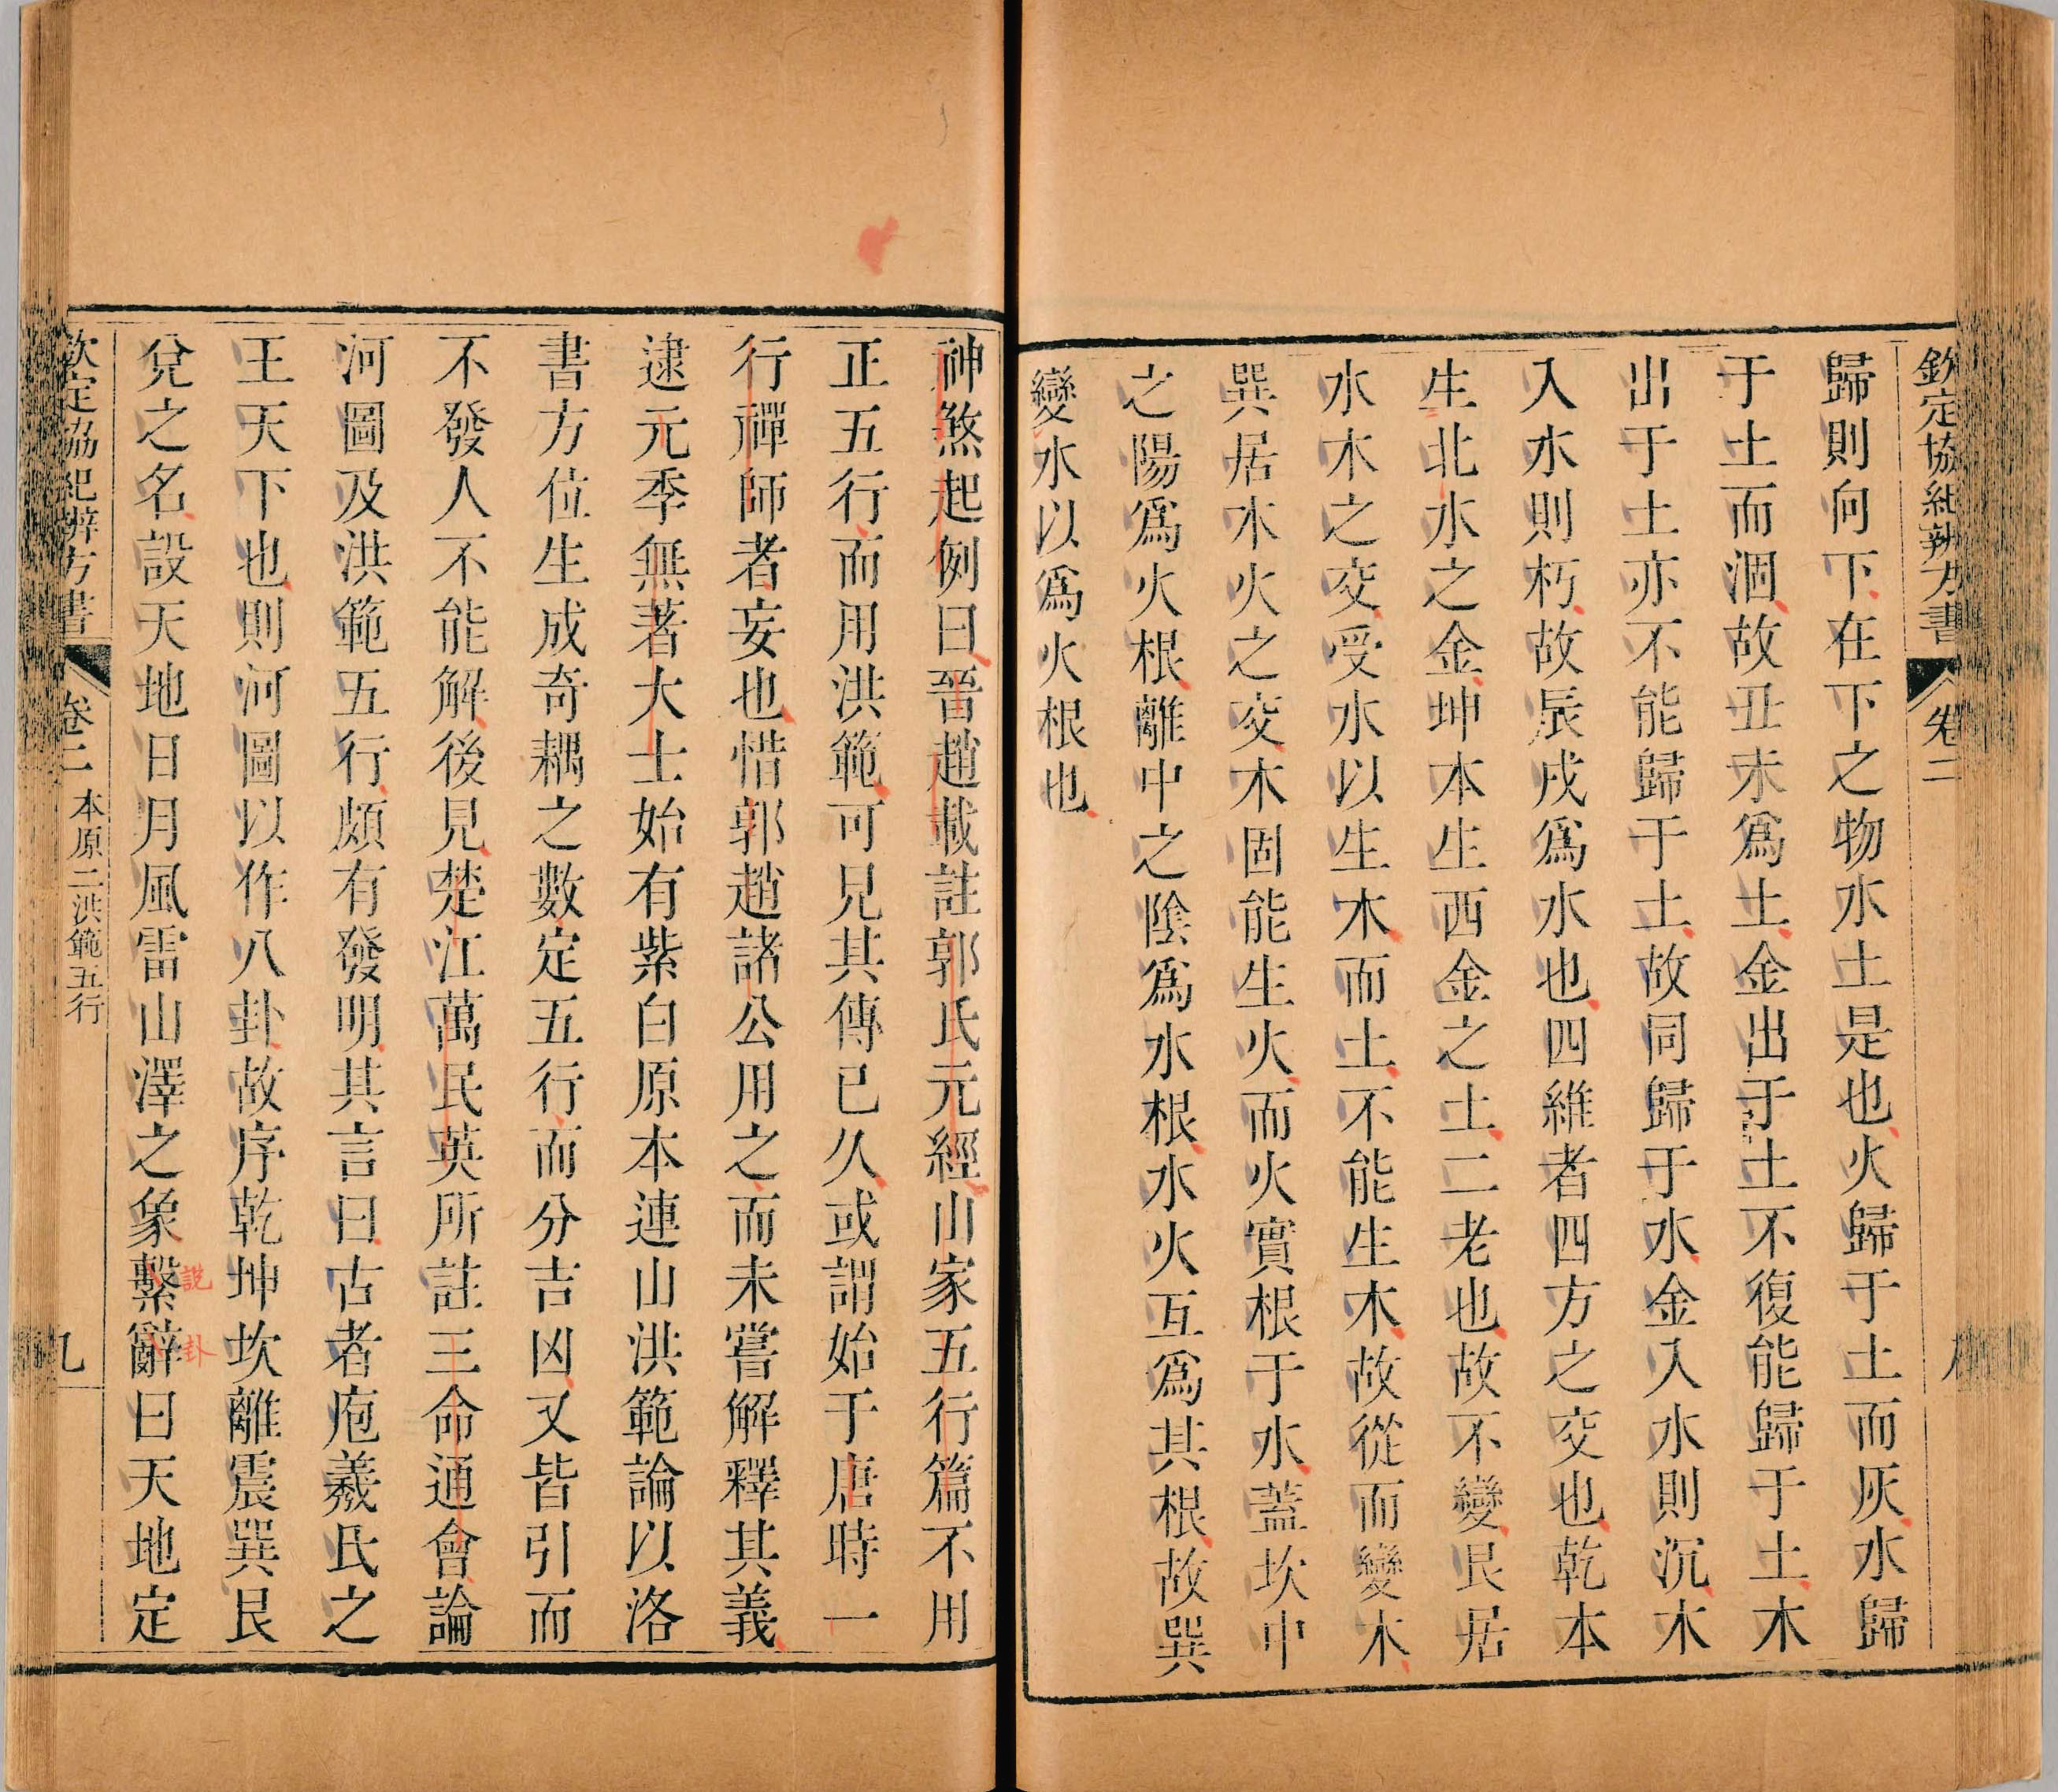 欽定協紀辨方書 卷二
歸則向下在下之物水土是也火歸于土而灰水歸
于土而涸故丑未爲土金出于土不復能歸于土木
出于土亦不能歸于土故同歸于水金入水則沉木
入水則朽故辰戌爲水也四維者四方之交也乾本
生北水之金坤本生西金之土二老也故不變艮居
水木之交受水以生木而土不能生木故從而變木
巽居木火之交木固能生火而火實根于水蓋坎中
之陽爲火根離中之陰爲水根水火互爲其根故巽
變水以爲火根也
神煞起例曰晉趙載註郭氏元經山家五行篇不用
正五行而用洪範可見其傳已久或謂始于唐時一
行禪師者妄也惜郭趙諸公用之而未嘗解釋其義
逮元季無著大士始有紫白原本連山洪範論以洛
書方位生成奇耦之數定五行而分吉凶又皆引而
不發人不能解後見楚江萬民英所註三命通會論
河圖及洪範五行頗有發明其言曰古者庖羲氏之
王天下也則河圖以作八卦故序乾坤坎離震巽艮
說卦
兌之名設天地日月風雷山澤之象繫辭曰天地定
欽定協紀辨方書 卷二 本原二洪範五行 九